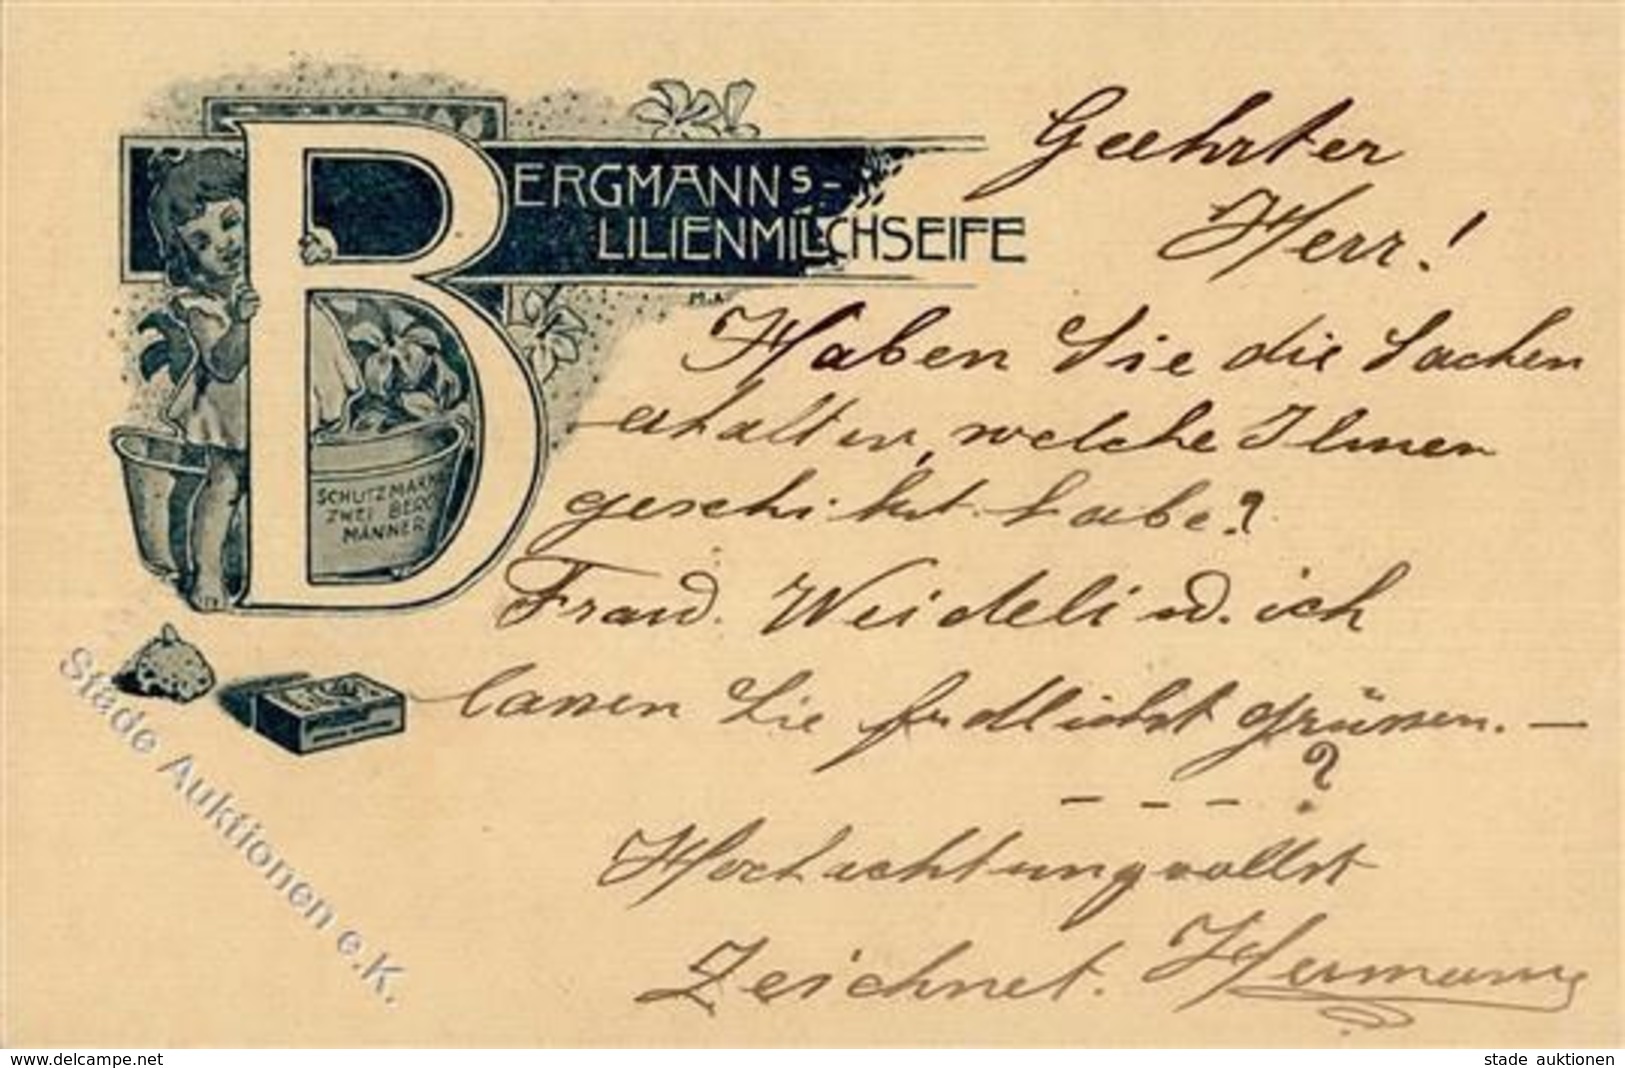 BERGMANNS-
LILIENMILCHSEIFE
M.A.
SCHUTZMARKE
ZWEI BERG
MÄNNER
Geehrter
Herr!
Haben Sie die Sachen
erhalten, welche Ihnen
geschikt habe?
Frau. Weideli u. ich
lassen Sie frdlichst grüssen. —
- - - ?
Hochachtungvollst
Zeichnet. Hermann
Stade Auktionen e.K.
www.delcampe.net
stade auktionen